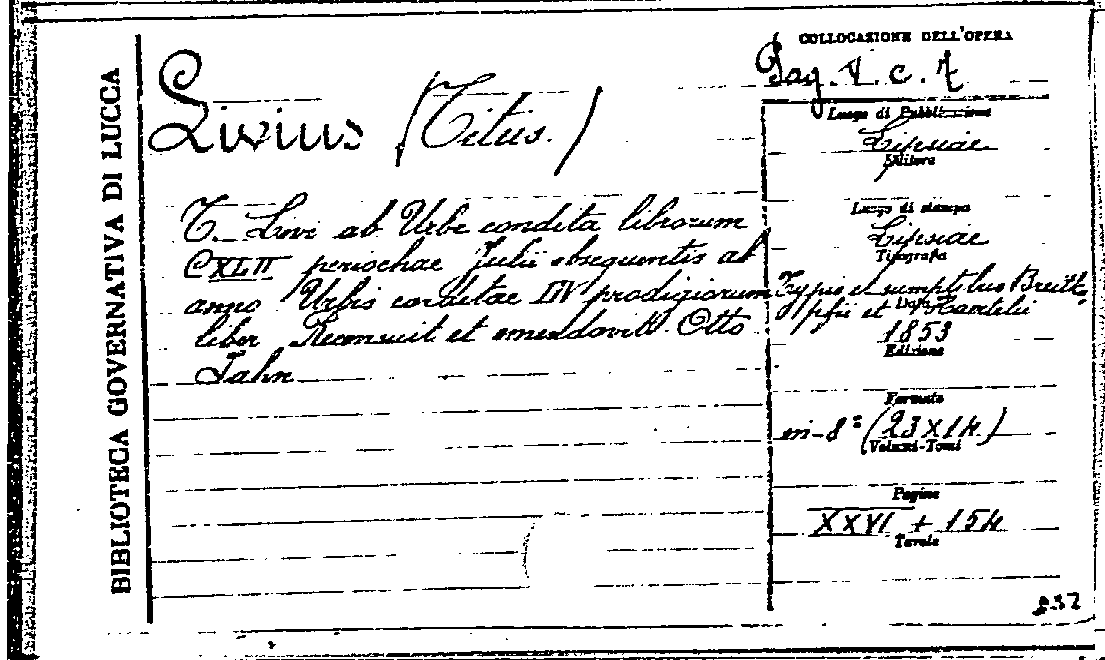 BIBLIOTECA GOVERNATIVA DI LUCCA
COLLOCAZIONE DELL'OPERA
Pag. V. c. 7
Livius (Titus.)
Luogo di Pubblicazione
Lipsiae
Editore
Luogo di stampa
Lipsiae
Tipografia
Typis et sumptibus Breitko
pfii et Haertelii
Data
1853
Edizione
Formato
in-8° (23X14)
Volumi-Tomi
Pagine
XXVI + 154
Tavole
T. Livi ab Urbe condita librorum
CXLII periochae Julii obsequentis ab
anno Urbis conditae DV prodigiorum
liber Recensuit et emendavit Otto
Jahn